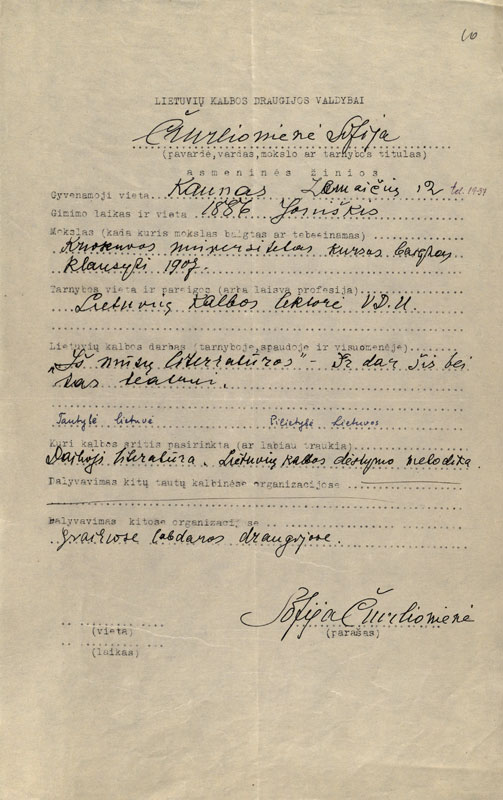 10
LIETUVIŲ KALBOS DRAUGIJOS VALDYBAI
Čiurlionienė Sofija
(pavardė, vardas, mokslo ar tarnybos titulas)
asmeninės žinios
Gyvenamoji vieta Kaunas Žemaičių 12 tel.
Gimimo laikas ir vieta 1886 Joniškis
Mokslas (kada kuris mokslas baigtas ar tebeeinamas)
Krokuvos universitetas kursas baigtas
klausyti 1907.
Tarnybos vieta ir pareigos (arba laisva profesija)
Lietuvių Kalbos lektorė V.D.U.
Lietuvių kalbos darbas (tarnyboje, spaudoje ir visuomenėje)
„Iš mūsų literatūros" – Ir dar šis bei
tas teatrui.
Tautybė Lietuvė Pilietybė Lietuvos
Kuri kalbos sritis pasirinkta (ar labiau traukia)
Dailioji literatūra. Lietuvių kalbos dėstymo metodika
Dalyvavimas kitų tautų kalbinėse organizacijose
Dalyvavimas kitose organizacijose
Įvairiose labdaros draugijose.
Sofija Čiurlionienė
(vieta) (parašas)
(laikas)